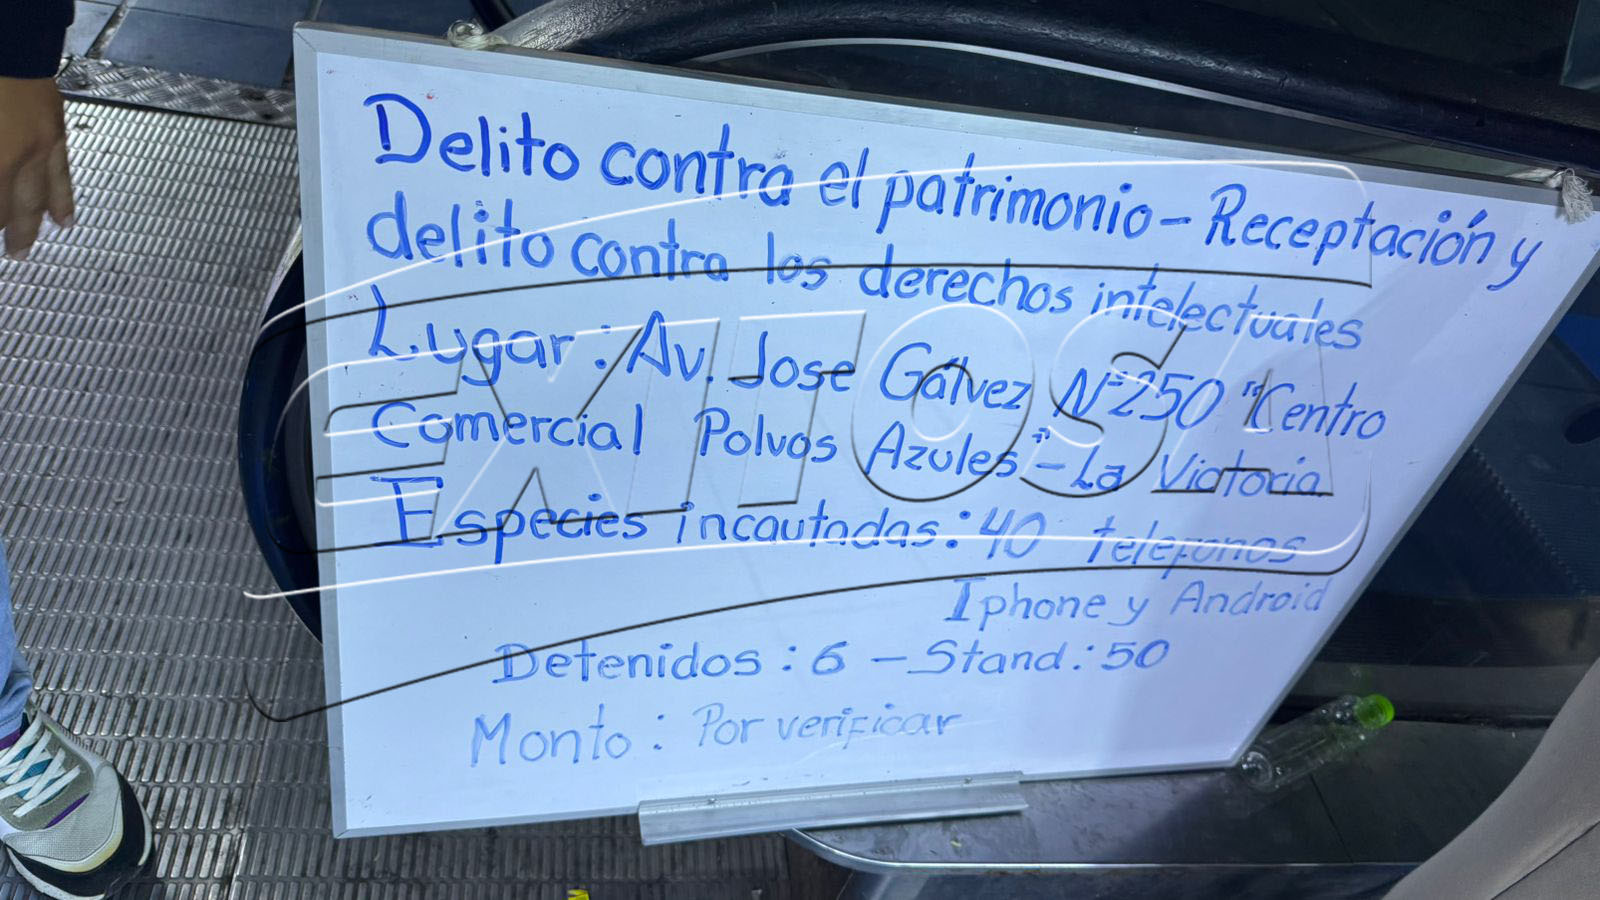 Delito contra el patrimonio - Receptación y
delito contra los derechos intelectuales
Lugar : Av. Jose Gálvez Nº 250 "Centro
Comercial Polvos Azules" - La Victoria
Especies incautadas : 40 telefonos
Iphone y Android
Detenidos : 6 - Stand : 50
Monto : Por verificar
EXITOSA